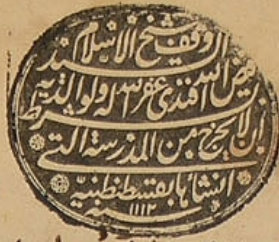 وقف شيخ الاسلام السيد
فيض الله افندي غفر الله له ولوالديه
بشرط ان لا يخرج من المدرسة التي
انشأها بقسطنطنية
سنه ١١١٣